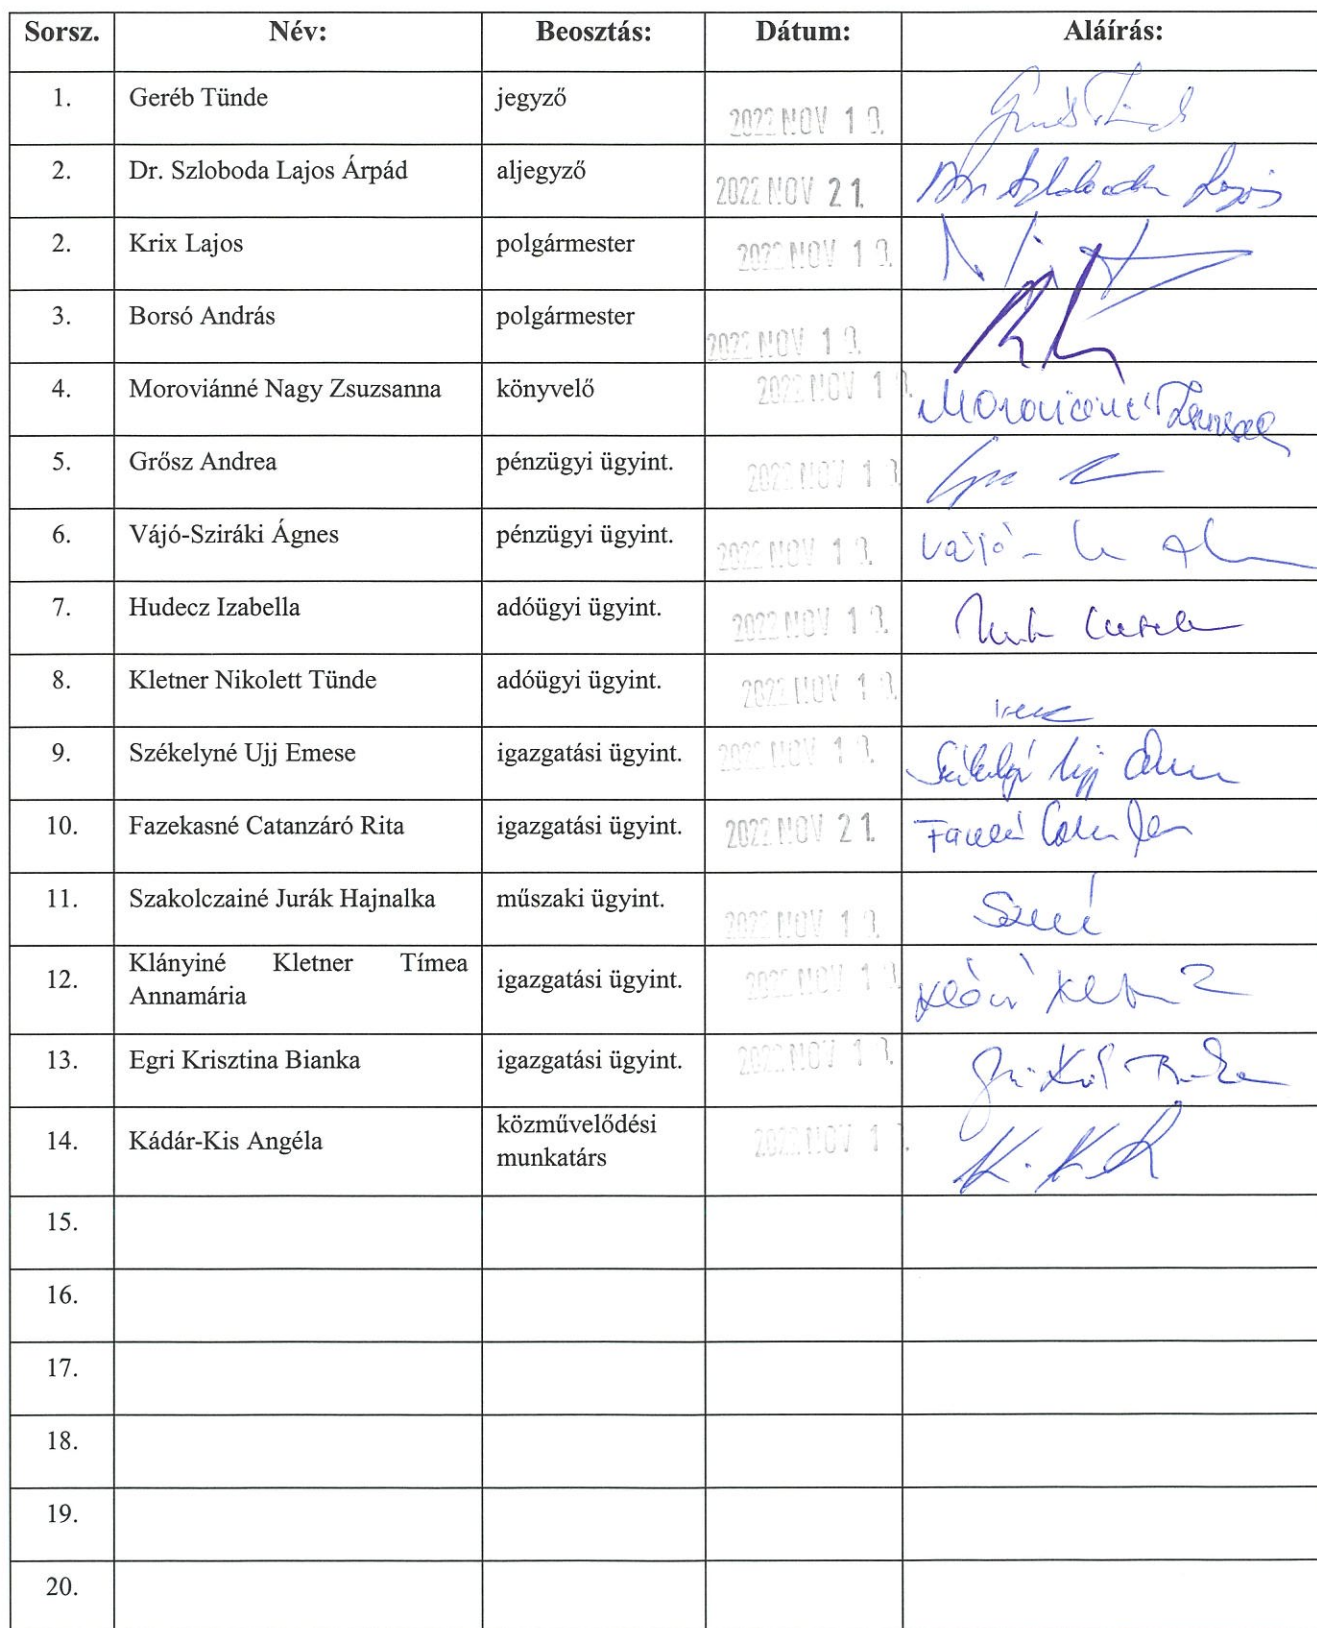 Sorsz. Név: Beosztás: Dátum: Aláírás:
1. Geréb Tünde jegyző 2022 NOV 1
2. Dr. Szloboda Lajos Árpád aljegyző 2022 NOV 21. Dr Szloboda Lajos
2. Krix Lajos polgármester 2022 NOV 1
3. Borsó András polgármester 2022 NOV 1
4. Moroviánné Nagy Zsuzsanna könyvelő 2022 NOV 1
5. Grősz Andrea pénzügyi ügyint. 2022 NOV 1
6. Vájó-Sziráki Ágnes pénzügyi ügyint. 2022 NOV 1 Vájó-
7. Hudecz Izabella adóügyi ügyint. 2022 NOV 1
8. Kletner Nikolett Tünde adóügyi ügyint. 2022 NOV 1
9. Székelyné Ujj Emese igazgatási ügyint. 2022 NOV 1
10. Fazekasné Catanzáró Rita igazgatási ügyint. 2022 NOV 21.
11. Szakolczainé Jurák Hajnalka műszaki ügyint. 2022 NOV 1
12. Klányiné Kletner Tímea igazgatási ügyint. 2022 NOV 1
Annamária
13. Egri Krisztina Bianka igazgatási ügyint. 2022 NOV 1
14. Kádár-Kis Angéla közművelődési 2022 NOV 1
munkatárs
15.
16.
17.
18.
19.
20.